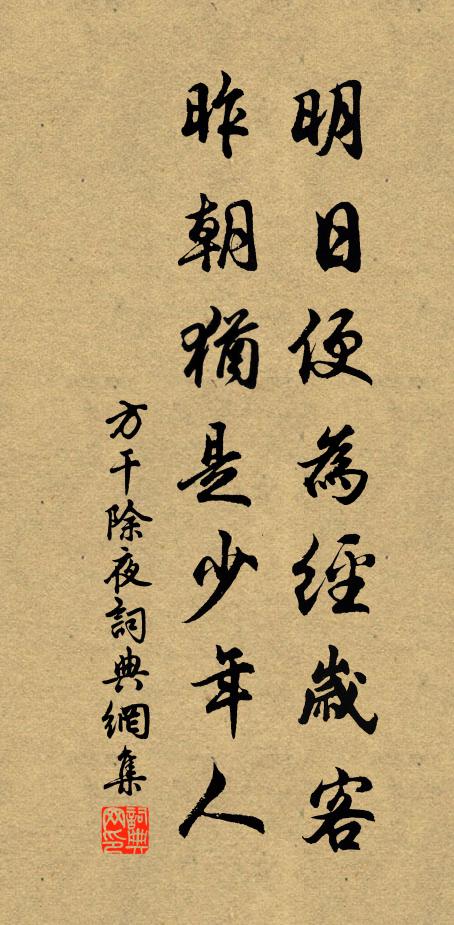 明日便為經歲客
昨朝猶是少年人
方干除夜詞典網集
詞典網印